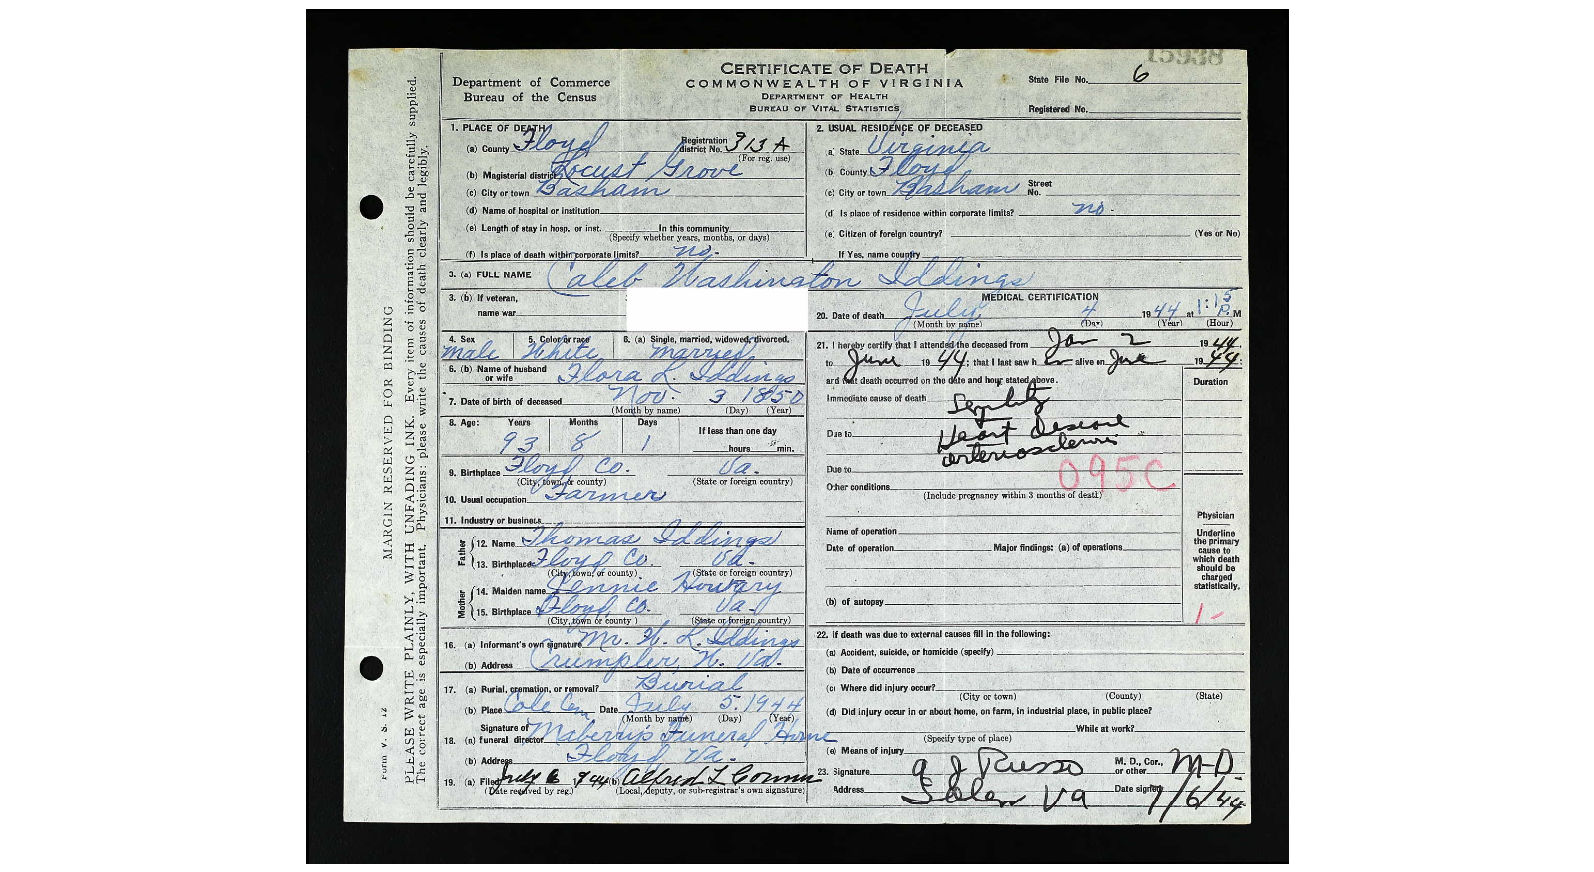 15938
CERTIFICATE OF DEATH
COMMONWEALTH OF VIRGINIA
DEPARTMENT OF HEALTH
BUREAU OF VITAL STATISTICS
Department of Commerce
Bureau of the Census
State File No. 6
Registered No.
1. PLACE OF DEATH
(a) County Floyd Registration district No. 313 A
(For reg. use)
(b) Magisterial district Locust Grove
(c) City or town Basham
(d) Name of hospital or institution
(e) Length of stay in hosp. or inst. In this community
(Specify whether years, months, or days)
(f) Is place of death within corporate limits? no.
2. USUAL RESIDENCE OF DECEASED
(a) State Virginia
(b) County Floyd
(c) City or town Basham Street No.
(d) Is place of residence within corporate limits? no.
(e) Citizen of foreign country? (Yes or No)
If Yes, name country
3. (a) FULL NAME Caleb Washington Iddings
3. (b) If veteran,
name war
4. Sex 5. Color or race 6. (a) Single, married, widowed, divorced,
male White married
6. (b) Name of husband or wife Flora L. Iddings
7. Date of birth of deceased Nov. 3 1850
(Month by name) (Day) (Year)
8. Age: Years Months Days If less than one day
93 8 1 hours min.
9. Birthplace Floyd Co. Va.
(City, town, or county) (State or foreign country)
10. Usual occupation Farmer
11. Industry or business
Father
12. Name Thomas Iddings
13. Birthplace Floyd Co. Va.
(City, town, or county) (State or foreign country)
Mother
14. Maiden name Pennie Howery
15. Birthplace Floyd Co. Va.
(City, town or county ) (State or foreign country)
16. (a) Informant's own signature Mr. W. L. Iddings
(b) Address Crumpler, W. Va.
17. (a) Burial, cremation, or removal? Burial
(b) Place Cole Cem Date July 5, 1944
(Month by name) (Day) (Year)
18. (a) Signature of funeral director Maberry's Funeral Home
(b) Address Floyd Va.
19. (a) Filed July 6 1944 (b) Alfred L
(Date received by reg.) (Local, deputy, or sub-registrar's own signature)
MEDICAL CERTIFICATION
20. Date of death July 4 1944 at 1:15 P.M
(Month by name) (Day) (Year) (Hour)
21. I hereby certify that I attended the deceased from Jan 2 1944
to June 1944; that I last saw h alive on June 1944;
and that death occurred on the date and hour stated above. Duration
Immediate cause of death Senility
Due to Heart disease
arteriosclerosis
Due to
095C
Other conditions
(Include pregnancy within 3 months of death)
Physician
Underline the primary cause to which death should be charged statistically.
Name of operation
Date of operation Major findings: (a) of operations
(b) of autopsy
1-
22. If death was due to external causes fill in the following:
(a) Accident, suicide, or homicide (specify)
(b) Date of occurrence
(c) Where did injury occur?
(City or town) (County) (State)
(d) Did injury occur in or about home, on farm, in industrial place, in public place?
While at work?
(Specify type of place)
(e) Means of injury
23. Signature J Russo M. D., Cor., or other M-D.
Address Salem Va Date signed 7/6/44
MARGIN RESERVED FOR BINDING
PLEASE WRITE PLAINLY, WITH UNFADING INK. Every item of information should be carefully supplied.
The correct age is especially important. Physicians: please write the causes of death clearly and legibly.
Form V. S. 12